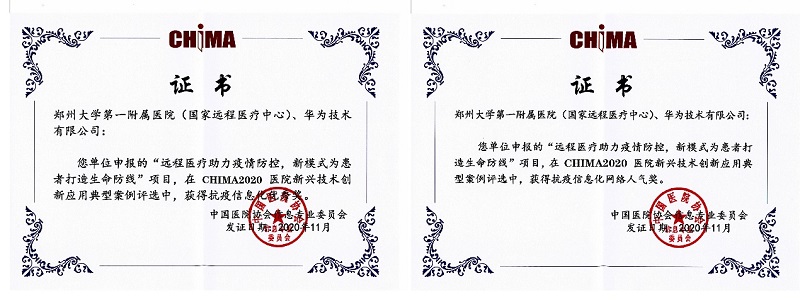 CHiMA
证书
郑州大学第一附属医院（国家远程医疗中心）、华为技术
有限公司：
您单位申报的“远程医疗助力疫情防控，新模式为患
者打造生命防线”项目，在 CHIMA2020 医院新兴技术创
新应用典型案例评选中，获得抗疫信息化优秀奖。
中国医院协会信息专业委员会
发证日期：2020年11月
CHiMA
证书
郑州大学第一附属医院（国家远程医疗中心）、华为技术有限公司：
您单位申报的“远程医疗助力疫情防控，新模式为患者打
造生命防线”项目，在 CHIMA2020 医院新兴技术创新应用典
型案例评选中，获得抗疫信息化网络人气奖。
中国医院协会信息专业委员会
发证日期：2020年11月